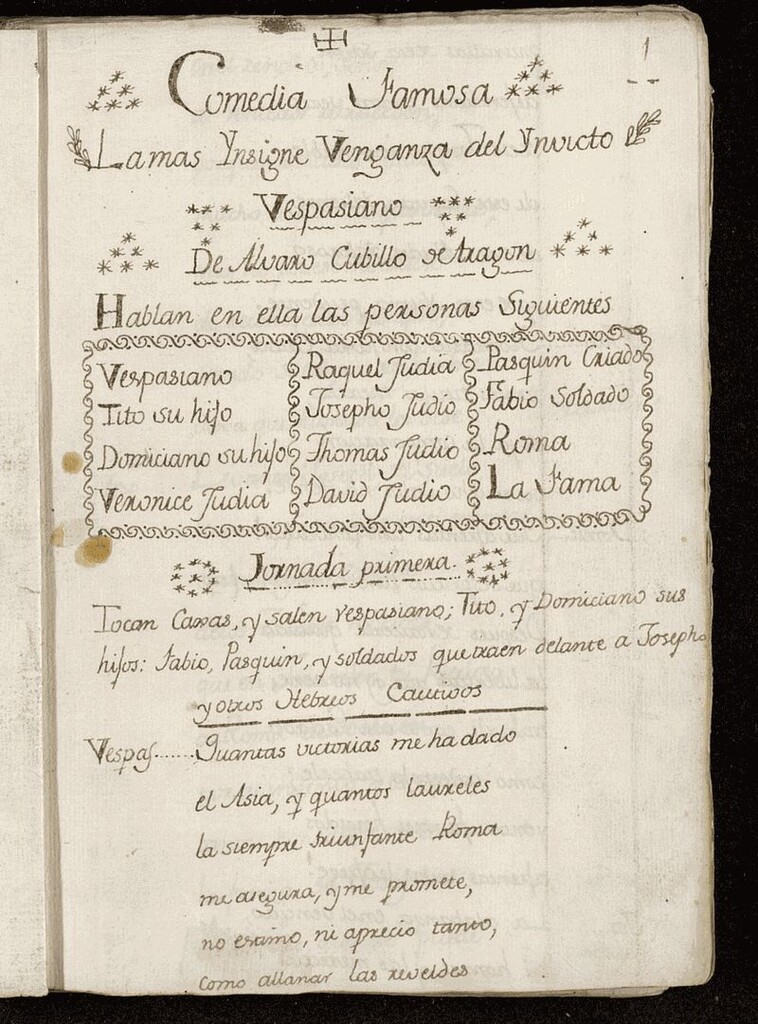 1
Comedia Famosa
La mas Ynsigne Venganza del Ynvicto
Vespasiano
De Alvaro Cubillo de Aragon
Hablan en ella las personas Siguientes
Vespasiano
Tito su hijo
Domiciano su hijo
Veronice Judia
Raquel Judia
Josepho Judio
Thomas Judio
David Judio
Pasquin Criado
Fabio Soldado
Roma
La Fama
Jornada primera.
Tocan Caxas, y salen Vespasiano; Tito, y Domiciano sus
hijos: Fabio, Pasquin, y soldados que traen delante a Josepho
y otros Hebreos Cautivos
Vespas...... Quantas victorias me ha dado
el Asia, y quantos laureles
la siempre triunfante Roma
me asegura, y me promete,
no estimo, ni aprecio tanto,
como allanar las reveldes